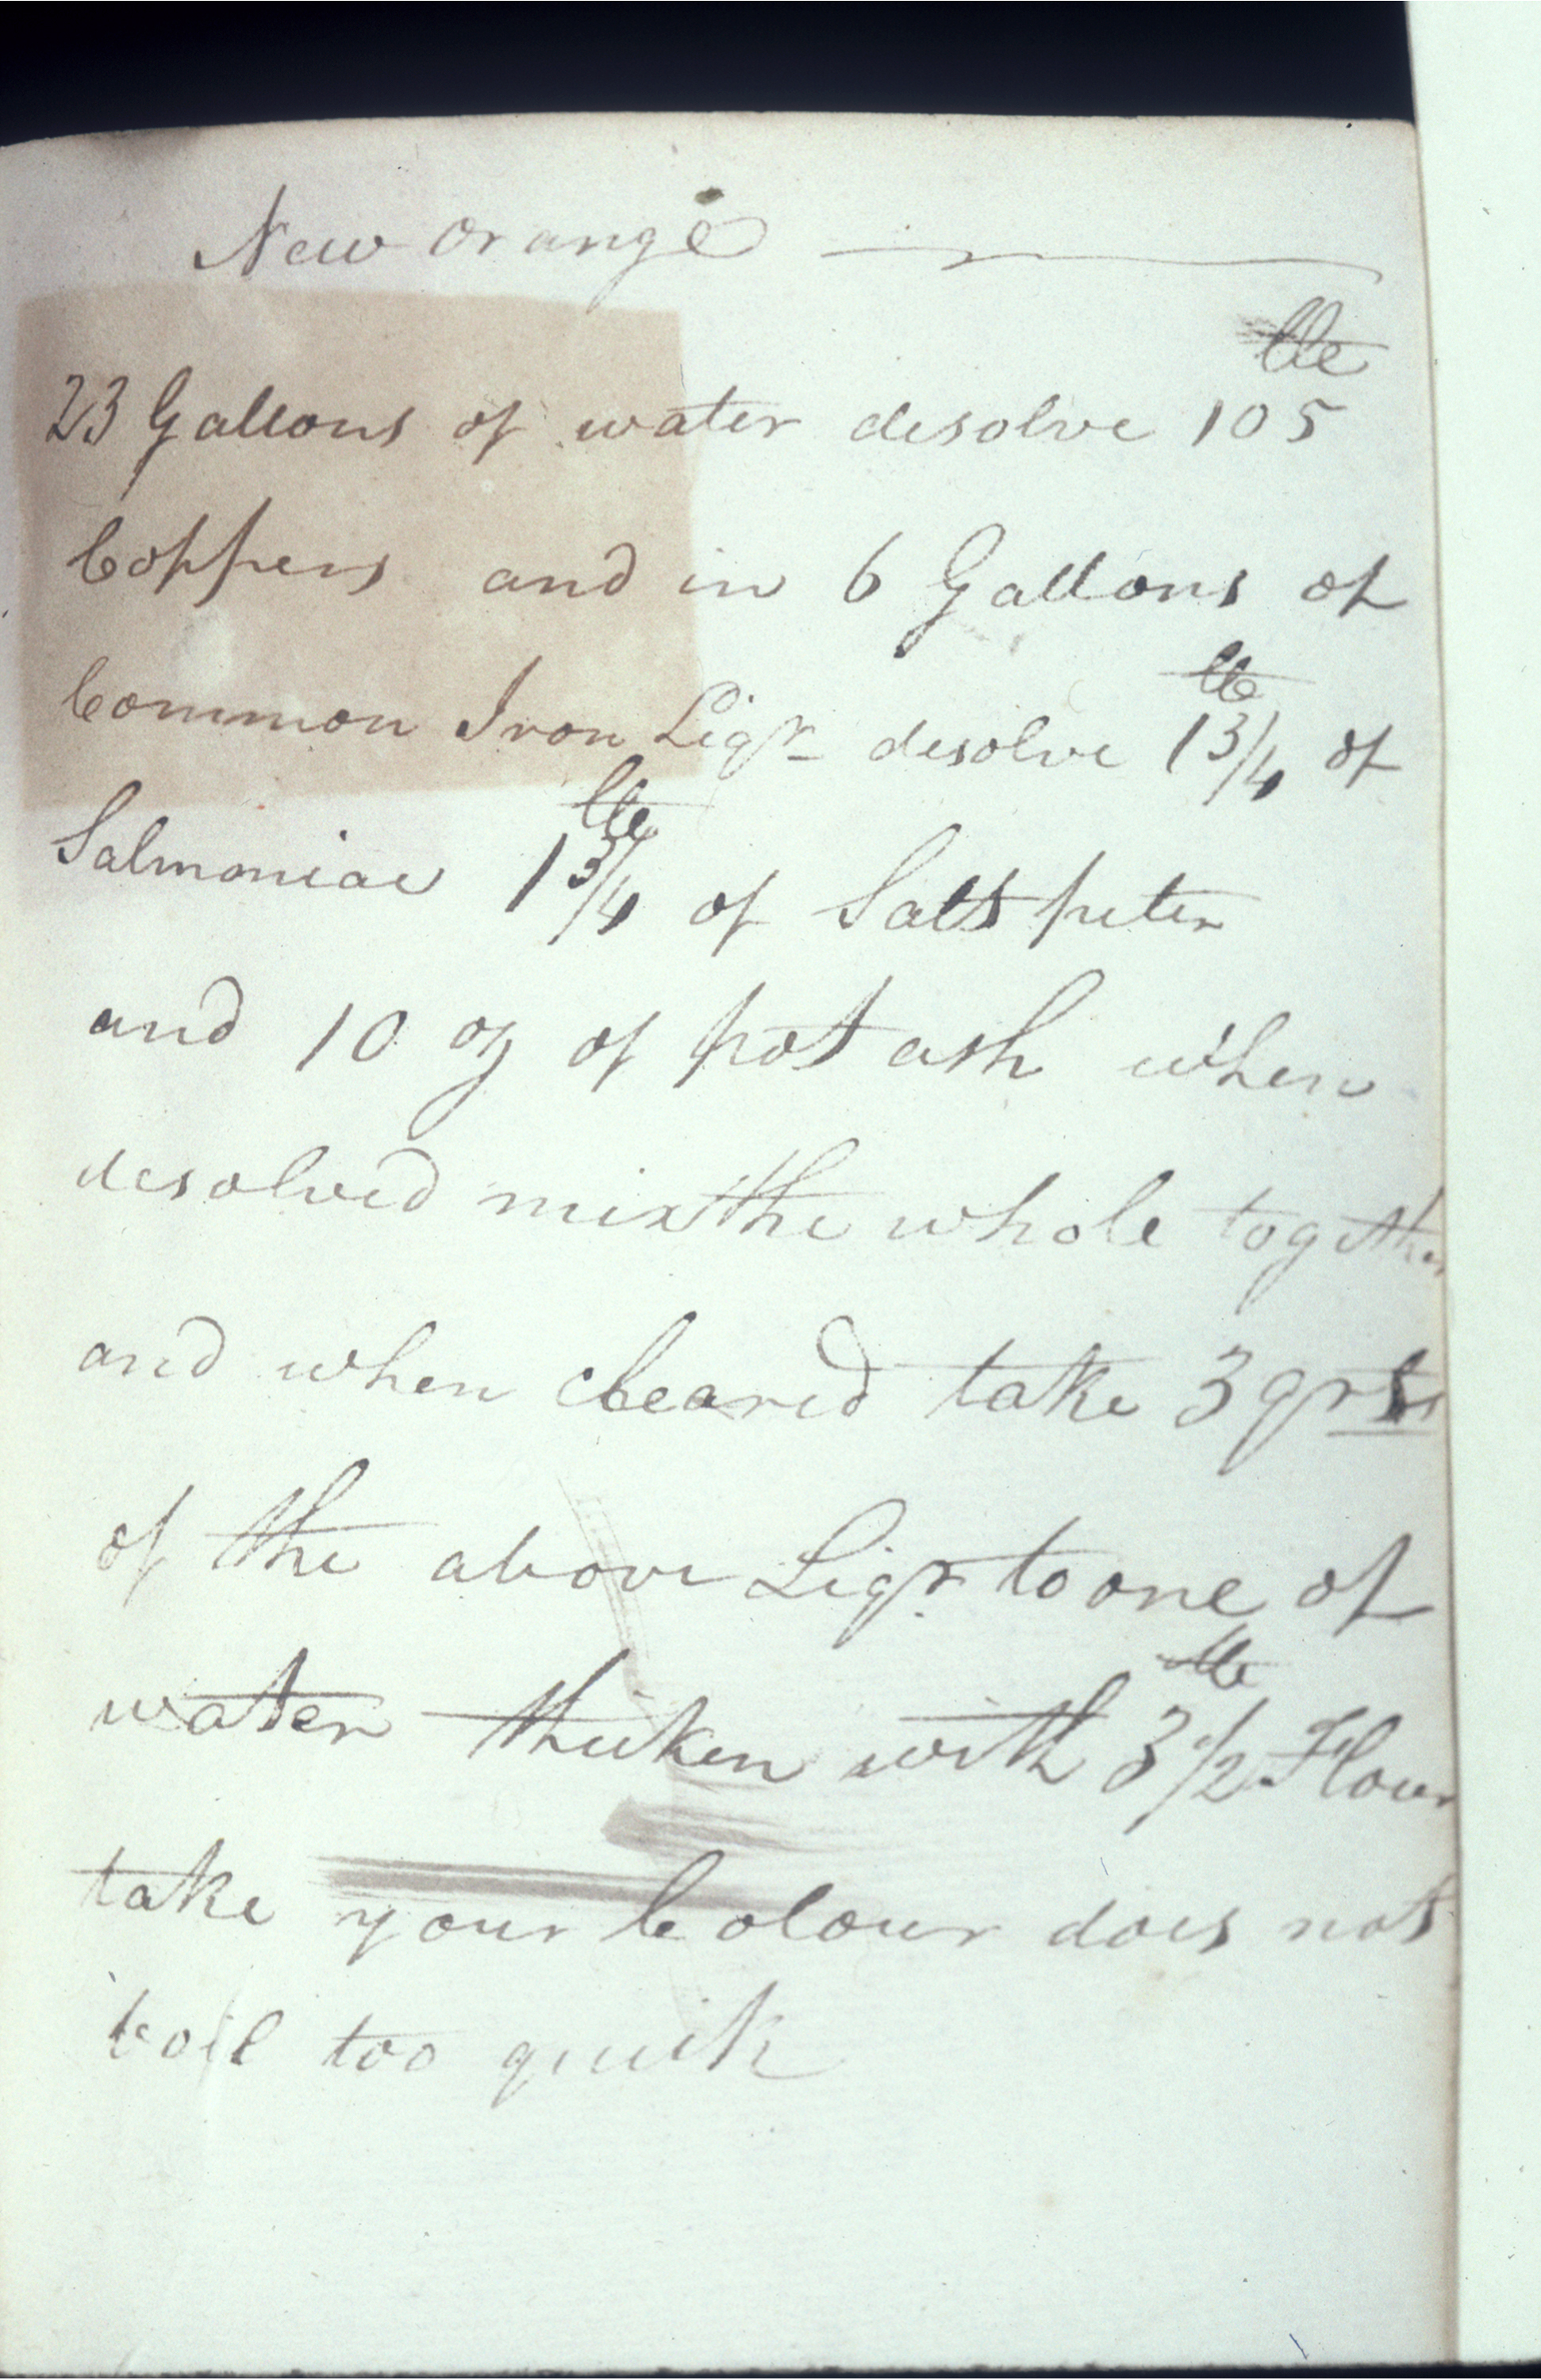 New Orange
23 Gallons of water desolve 105 lb
Coppers and in 6 Gallons of
Common Iron Liqr desolve 1 3/4 lb of
Salmoniac 1 3/4 lb of Salts peter
and 10 oz of pot ash when
desolved mix the whole together
and when cleared take 3 qrts
of the above Liqr to one of
water thicken with 3 1/2 lb Flour
take your Colour does not
boil too quick